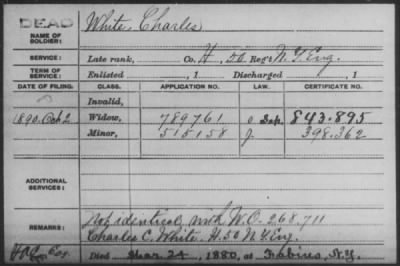 DEAD
NAME OF SOLDIER: White, Charles
SERVICE: Late rank, Co. H, 50 Reg't N.Y. Eng.
TERM OF SERVICE: Enlisted , 1 Discharged , 1
DATE OF FILING: CLASS. APPLICATION NO. LAW. CERTIFICATE NO.
Invalid,
1890. Oct 2 Widow, 789761 843.895
Minor, 515158 J. 398.362
ADDITIONAL SERVICES:
REMARKS: Not identical with W.O. 268.711
Charles C. White. H. 50 N.Y. Eng.
Died Mar. 24, 1880, at Fabius, N.Y.